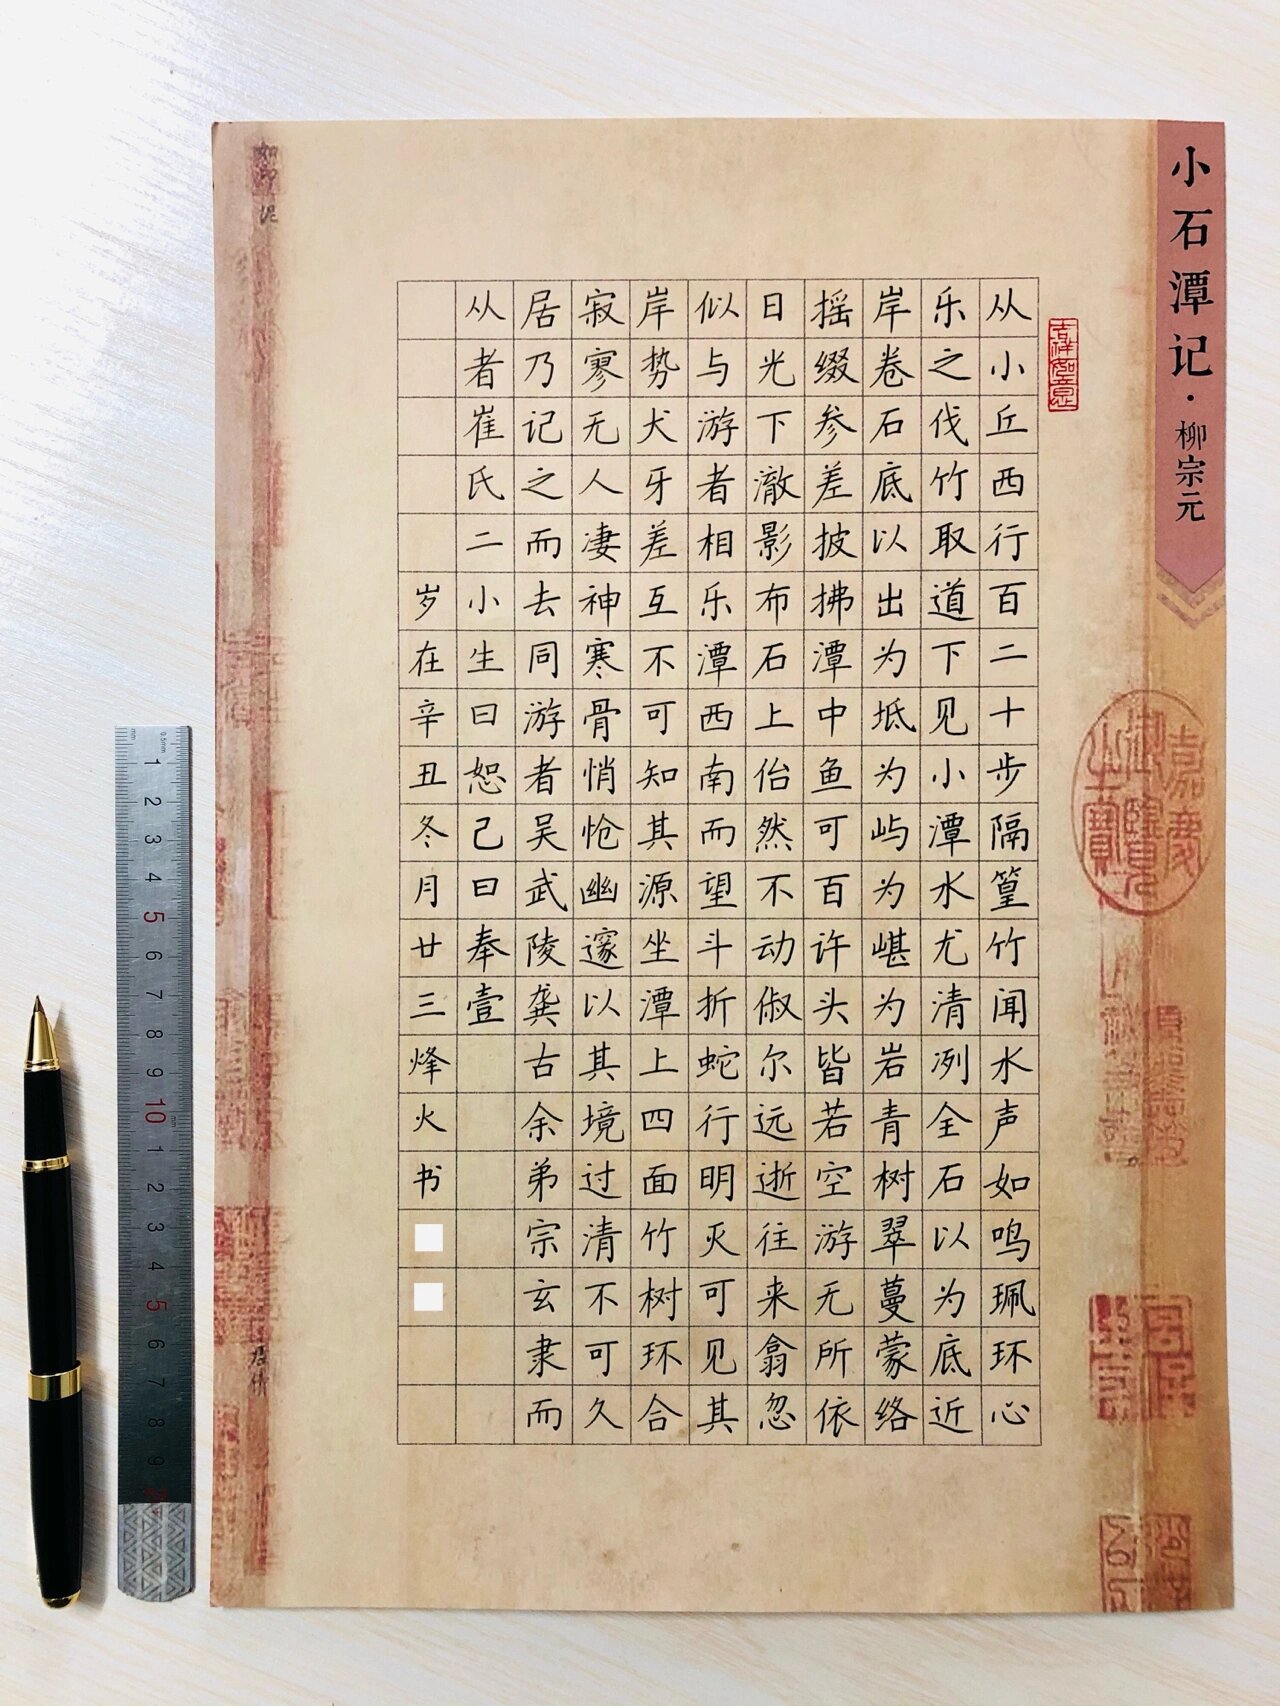 小石潭记·柳宗元
吉祥如意
从小丘西行百二十步隔篁竹闻水声如鸣珮环心
乐之伐竹取道下见小潭水尤清冽全石以为底近
岸卷石底以出为坻为屿为嵁为岩青树翠蔓蒙络
摇缀参差披拂潭中鱼可百许头皆若空游无所依
日光下澈影布石上佁然不动俶尔远逝往来翕忽
似与游者相乐潭西南而望斗折蛇行明灭可见其
岸势犬牙差互不可知其源坐潭上四面竹树环合
寂寥无人凄神寒骨悄怆幽邃以其境过清不可久
居乃记之而去同游者吴武陵龚古余弟宗玄隶而
从者崔氏二小生曰恕己曰奉壹
岁在辛丑冬月廿三烽火书
嘉庆御览之宝
mm 0.5mm
1 2 3 4 5 6 7 8 9 10 1 2 3 4 5 6 7 8 9